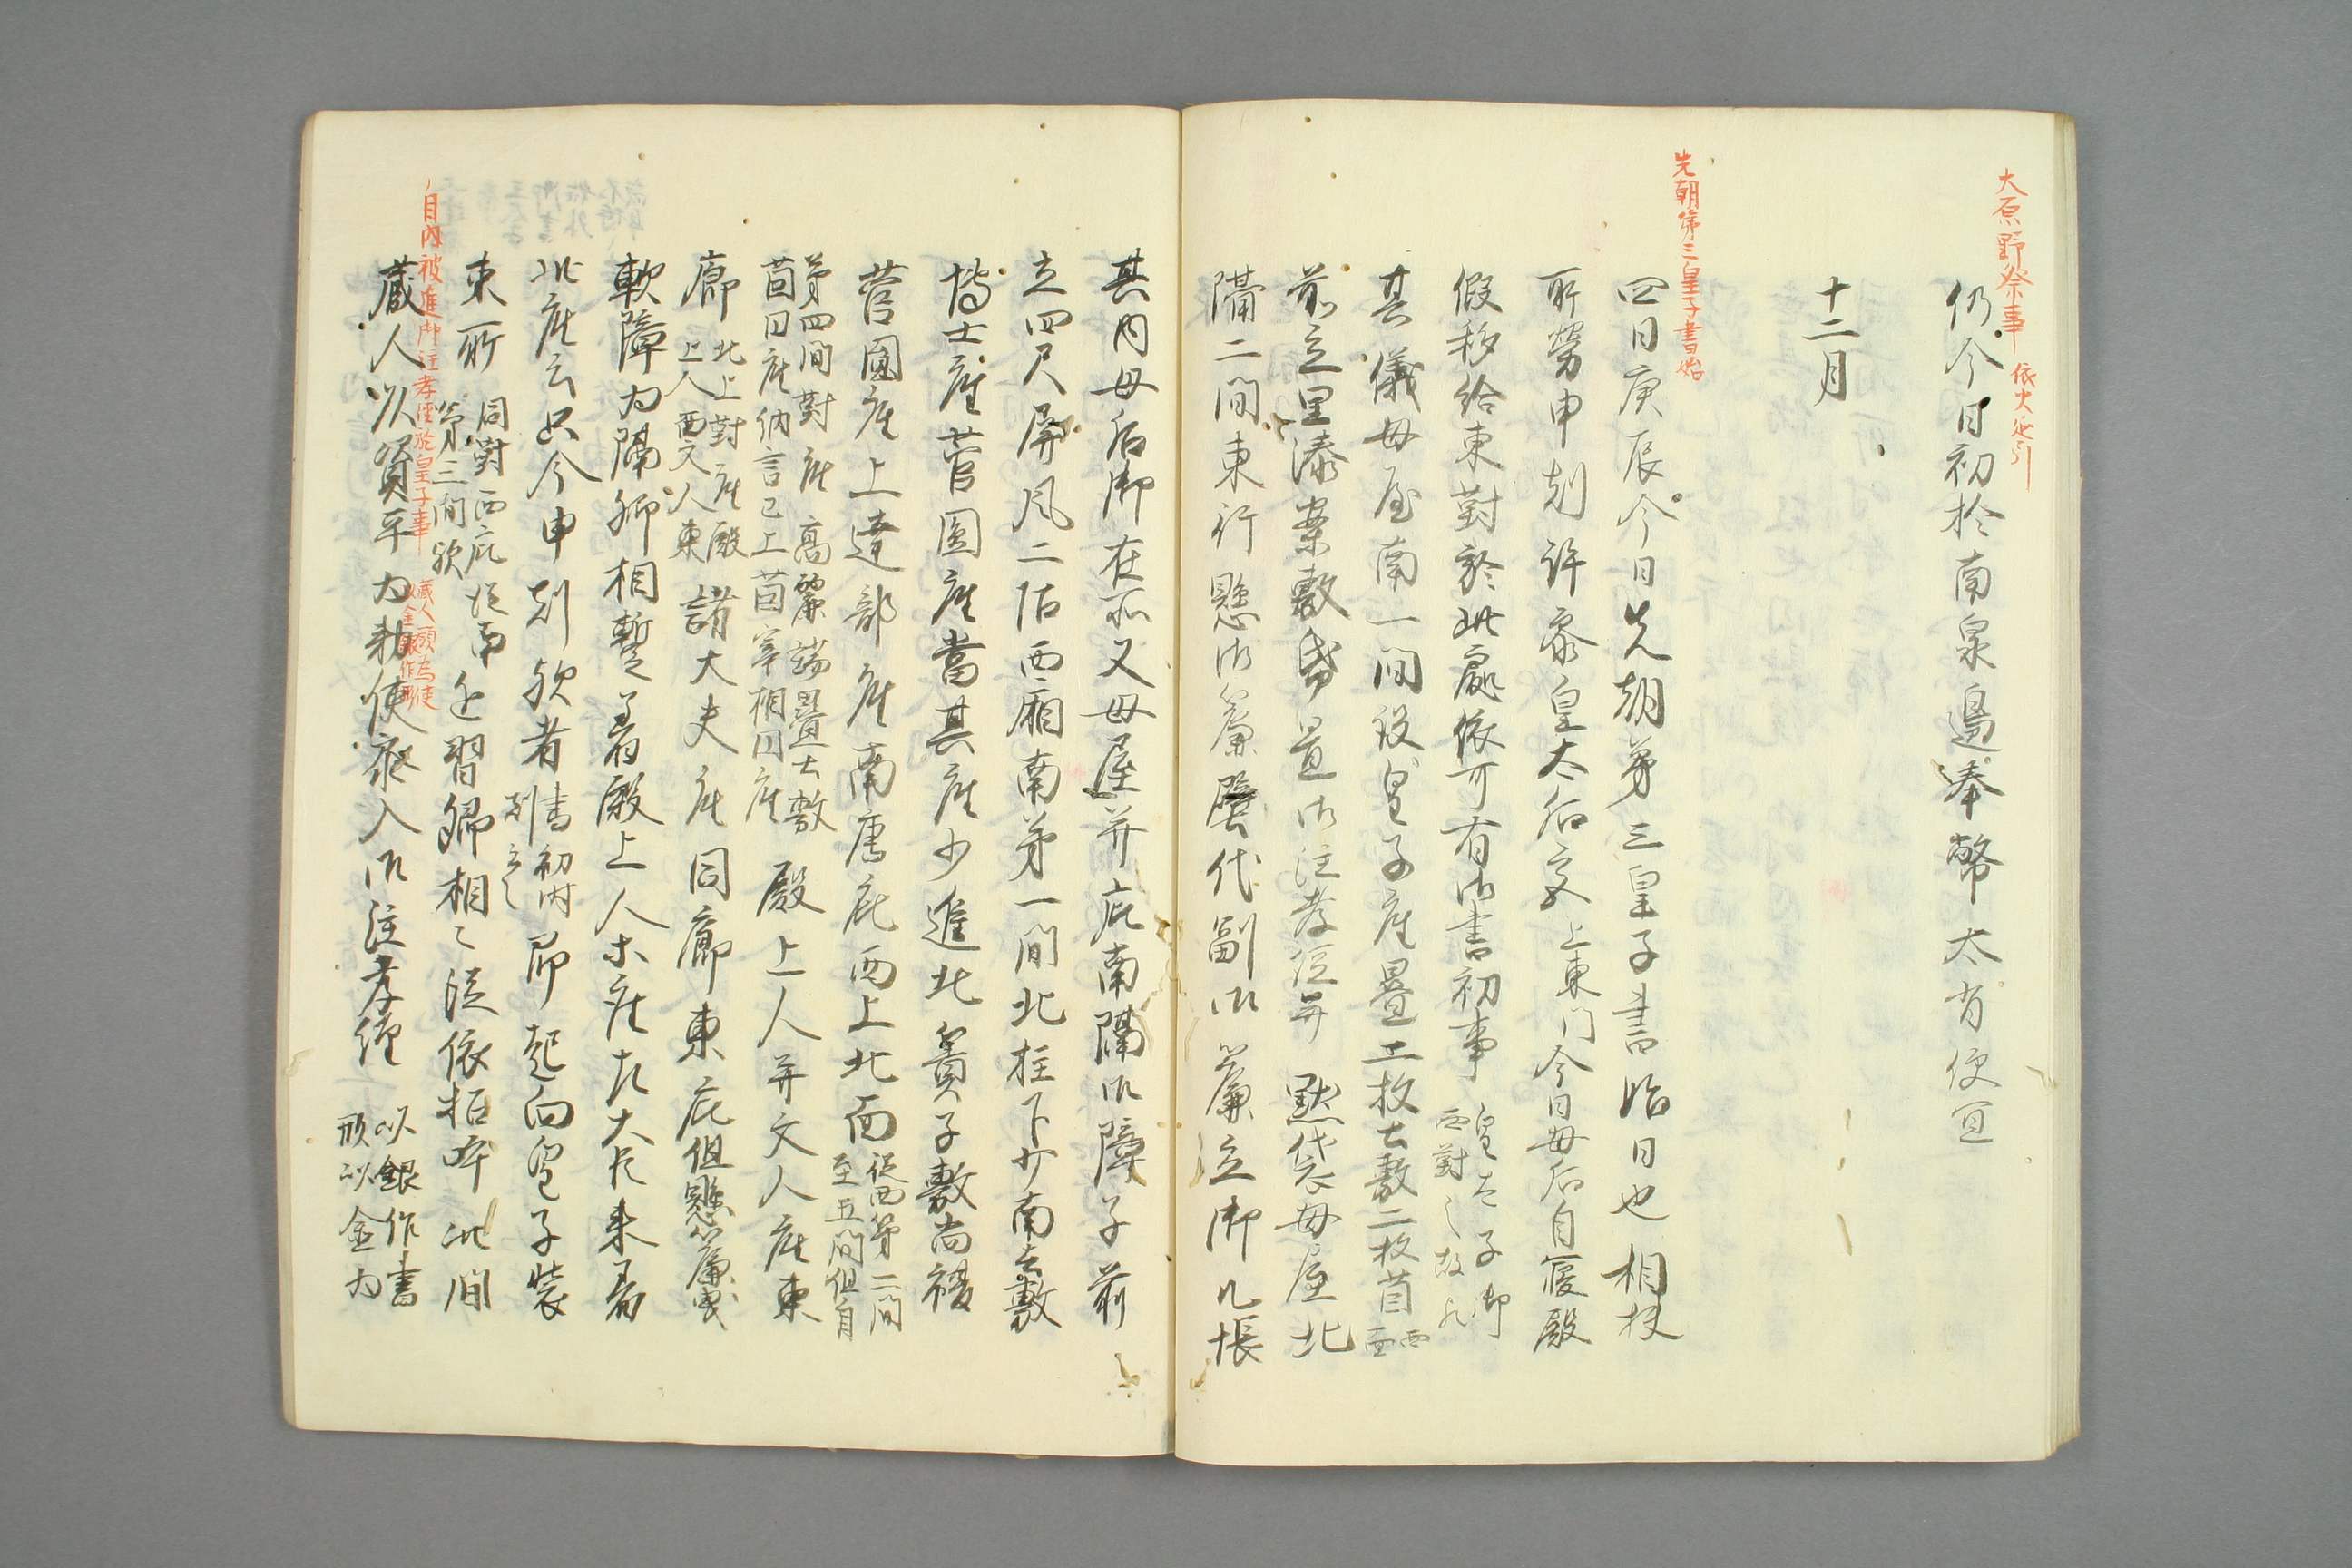 大原野祭事 依大延引
仍今日初於南泉邊奉幣太有便宜
十二月
先朝第三皇子書始
四日庚辰今日先朝第三皇子書始日也相扶
所労申剋許参皇太后宮上東門今日母后自寝殿
假移給東對於此處依可有御書初事皇太子御
西對之故也
其儀母屋南一間設皇子座疊二枚土敷二枚茵
前立黒漆案敷 置御注孝経并 點袋母屋北
隔二間東行懸御簾壁代副御簾立御几帳
其内母后御在所又母屋并庇南隔御障子前
立四尺屏風二帖西廂南第一間北柱下少南去敷
博士座菅圓座當其座少進北簀子敷尚復
菅圓座上達部座南唐庇西上北面従西第二間
至五間但自
第四間對座高麗端疊土敷
茵円座納言已上茵宰相円座
殿上人并文人座東
廊北上對座殿
上人西文人東
諸大夫座同廊東庇但懸簾曳
軟障為隔卿相暫着殿上人等座左大臣来着
此座云只今申剋欤者書初内
剋云々
即起向皇子装
束所同對西庇従南
第三間欤
近習卿相々従依招呼此間
自内被進御注孝経於皇子事 蔵人頭為使
以金銀作
蔵人以資平為勅使参入御注孝経以銀作書
形以金為